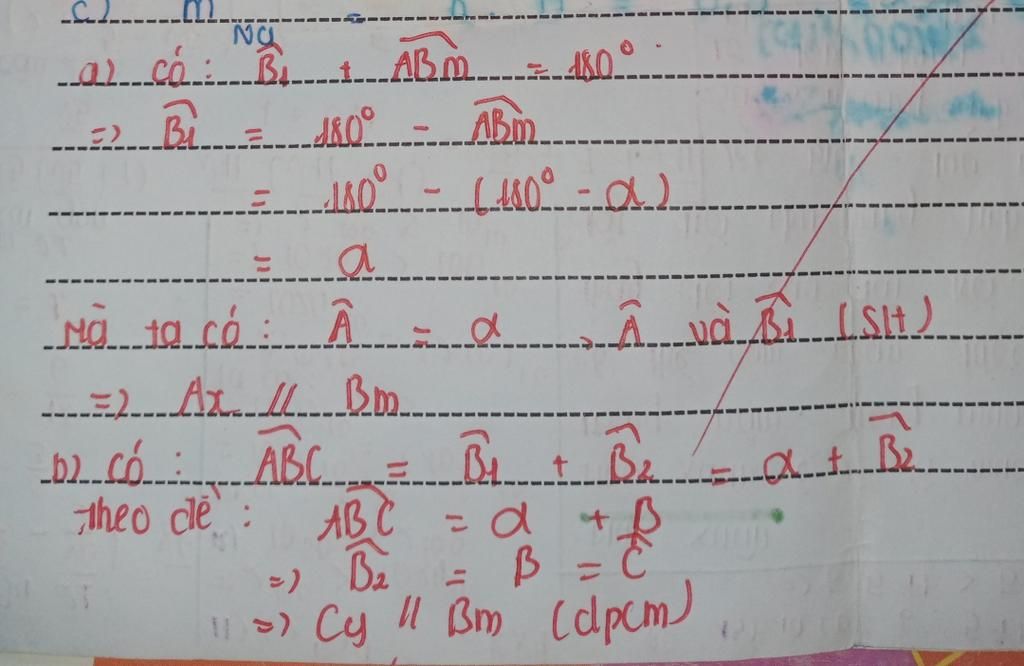 c) m =
Nq
a) có : B̂1 + ABm̂ = 180°
=> B̂1 = 180° - ABm̂
= 180° - (180° - α)
= α
Mà ta có : Â = α , Â và B̂1 (SLt)
=> Ax // Bm
b) có : ABĈ = B̂1 + B̂2 = α + B̂2
Theo đề : ABĈ = α + β
=> B̂2 = β = Ĉ
=> Cy // Bm (đpcm)